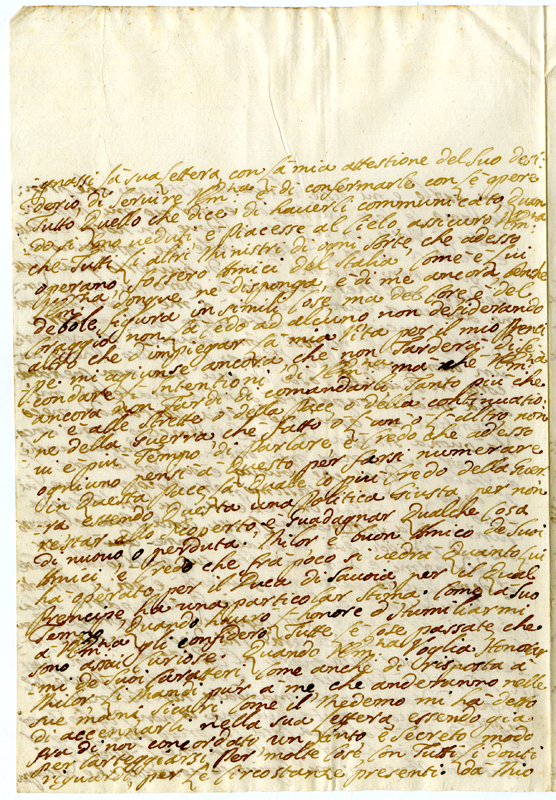 gnassi la sua lettera con la mia attestione del suo desi-
derio di servire Vem.na è di confermarle con l'opere
tutto quello che dice, di haverli communicato quan-
do si sono veduti, e piacesse al Cielo, assicuro Vem.na
che tutti li altri Ministri di ogni sorte, che adesso
operano, fossero amici del Italia, come è qui
Vem.na dunque ne disponga, è di me ancora benche
debole figura in simili cose, ma del core, è del
coraggio non la cedo ad alcuno non desiderando
altro che d'impiegar la mia vita per il mio Prenci-
pe. mi agiunse ancora che non tarderà
condare l'intentioni di Vem.na ma che Vem.na
ancora non tardi di comandarli tanto più che
si è alle strette ò della pace ò della continuatio-
ne della guerra che fatto ò l'un o l'altro non
vi è più tempo di parlare è credo che adesso
ogniuno pensi à questo per farsi numerare
in questa pace la quale io più credo della guer-
ra essendo questa una politica giusta per non
restar allo scoperto è guadagnar qualche cosa
di nuovo o perduta. Milor è buon Amico de suoi
Amici, è credo che fra poco si vedrà quanto lui
ha operato per il Duca di Savoia per il qual
Prencipe ha una particolar stima. Come a suo
tempo quando havrò l'honore d'humiliarmi
a Vem.na gli confiderò tutte le cose passate che
sono assai curiose. Quando Vem.na voglia honorar-
mi de suoi caratteri come anche di risposta a
Milor li mandi pur a me che anderanno nelle
sue mani sicuri come il medemo mi ha detto
di accennarli nella sua lettera essendo già
fra di noi concordato un certo è secreto modo
per carteggiarsi per molte cose con tutti li douti
riguardi per le circostanze presenti: dà Mio